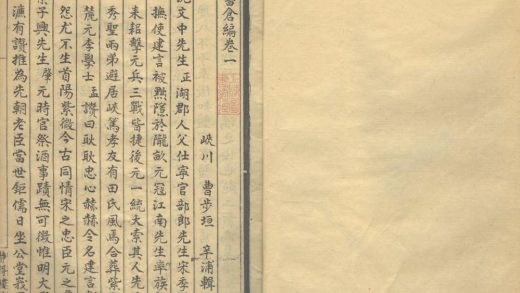 倉編卷一
峽川 曹步垣 辛浦輯
文中先生正湖郡人父仕寧官部郎先生宋季
撫使建言被黜隱於隴畝元冦江南先生率族
來紹擊元兵三戰皆捷後元一統大索其人先
秀聖雨弟避居峽篤孝友有田氏風焉合葬紫
麓元李學士孟讚曰耿耿忠心赫赫令名建言
怨尤不生首陽紫微今古同情宋之忠臣元之
子興先生肇元時官祭酒事蹟無可徵惟明大
濂有讚推為先朝老臣當世鉅儒日坐公堂